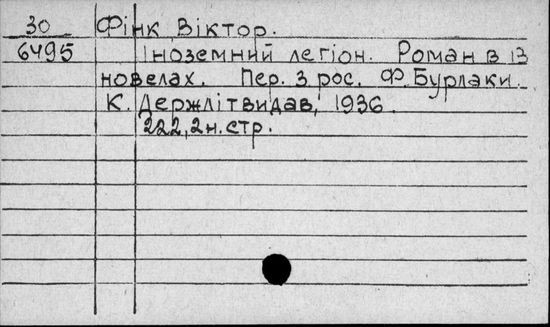 30 Фінк Віктор.
6495 Іноземний легіон. Роман в 13
новелах. Пер. з рос. Ф. Бурлаки.
К. Держлітвидав, 1936.
222, 2 н. стр.